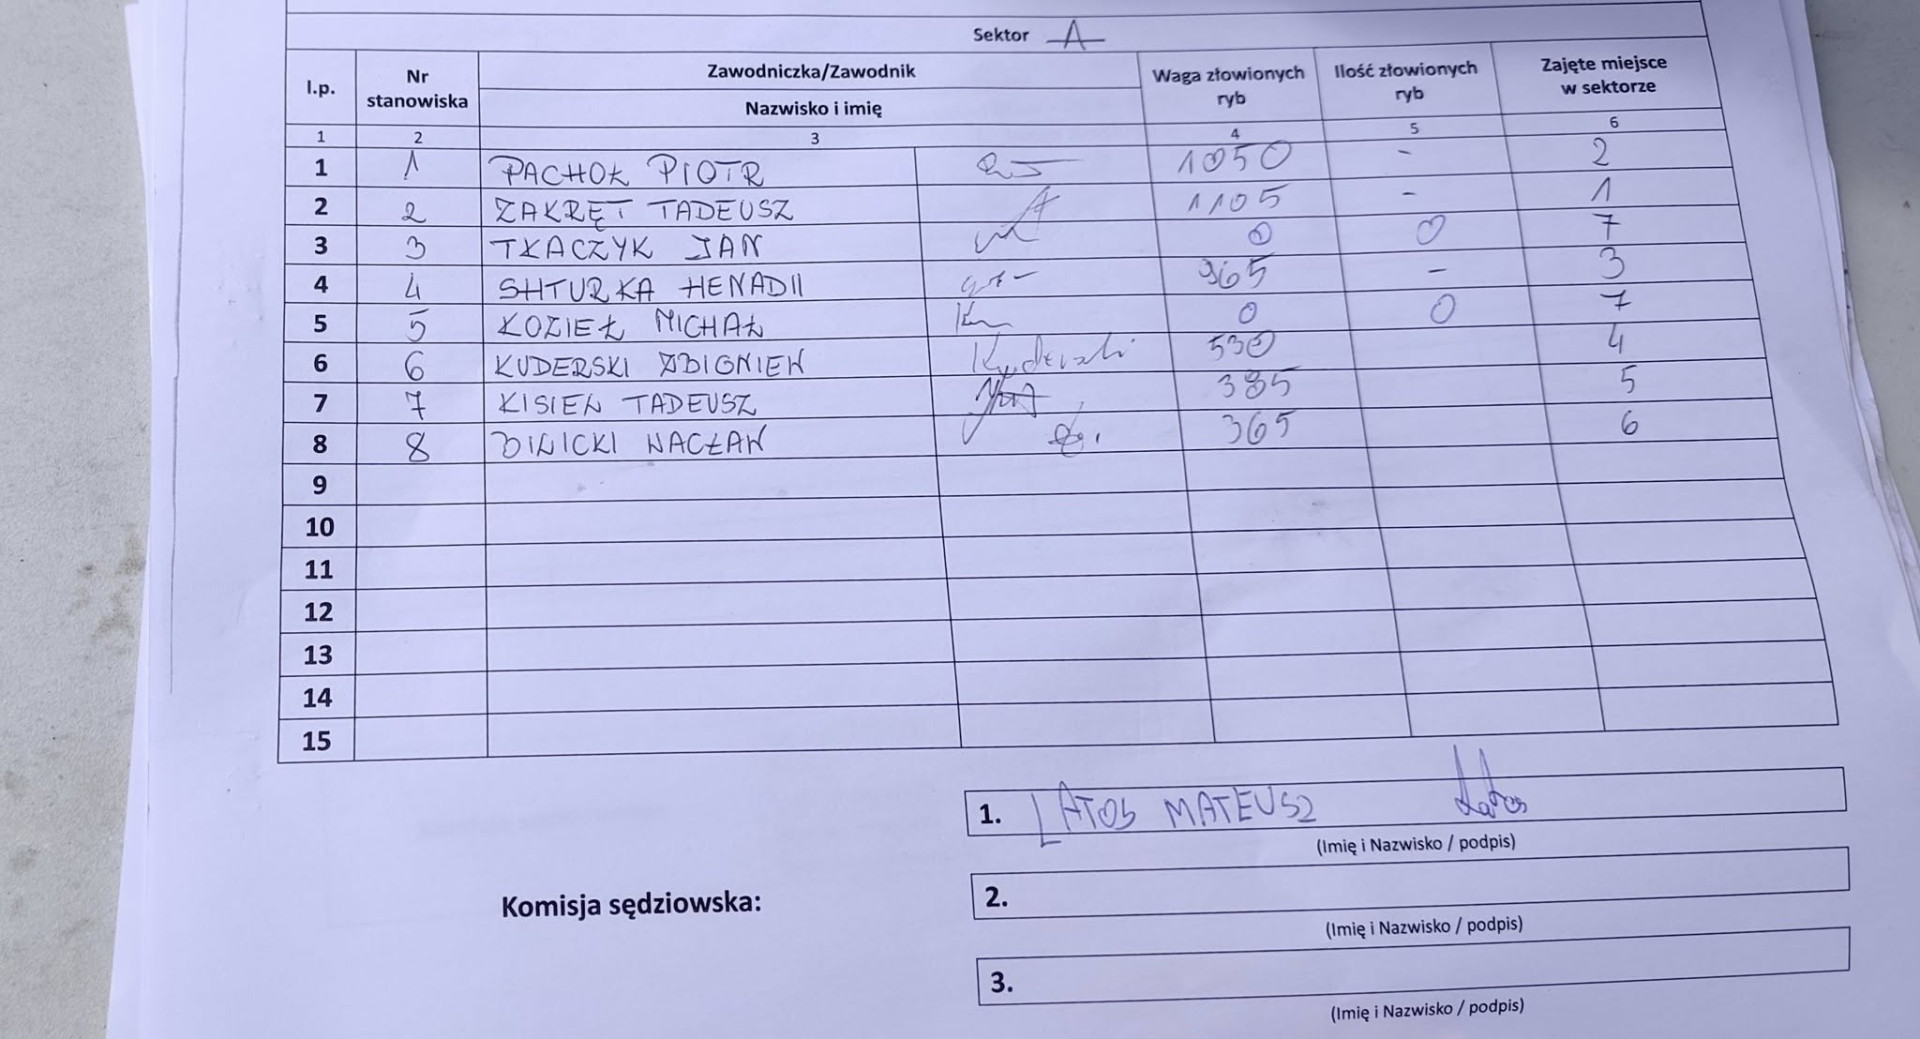 Sektor A
l.p. Nr stanowiska Zawodniczka/Zawodnik Nazwisko i imię Waga złowionych ryb Ilość złowionych ryb Zajęte miejsce w sektorze
1 2 3 4 5 6
1 1 PACHOŁ PIOTR 1050 - 2
2 2 ZAKRĘT TADEUSZ 1105 - 1
3 3 TKACZYK JAN 0 0 7
4 4 SHTURKA HENADII 965 - 3
5 5 KOZIEŁ MICHAŁ 0 0 7
6 6 KUDERSKI ZBIGNIEW Kuderski 530 4
7 7 KISIEL TADEUSZ 385 5
8 8 BILICKI WACŁAW 365 6
9
10
11
12
13
14
15
1. LATOS MATEUSZ Latos
(Imię i Nazwisko / podpis)
Komisja sędziowska:
2.
(Imię i Nazwisko / podpis)
3.
(Imię i Nazwisko / podpis)